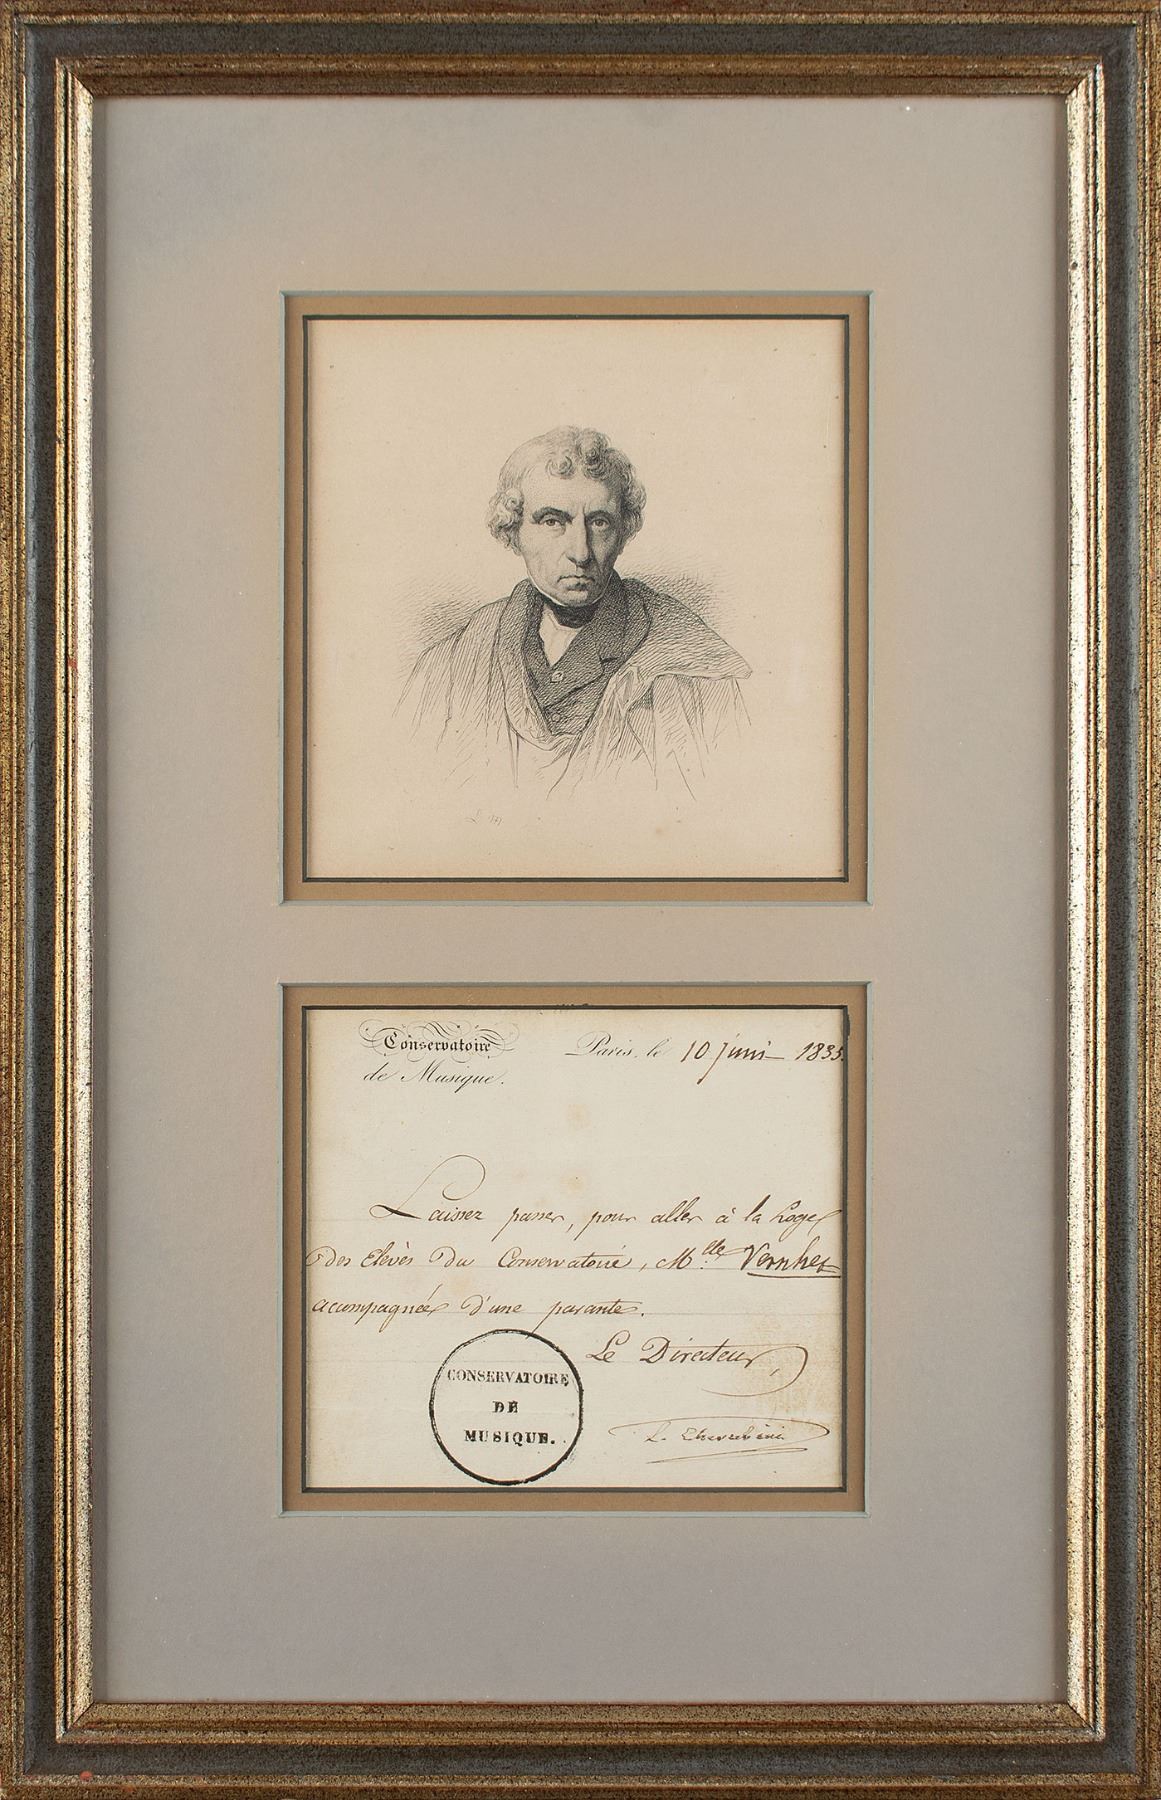 Conservatoire
de Musique.
Paris, le 10 juin 1835.
Laissez passer, pour aller à la Loge
des Elevès du Conservatoire, M.lle Vernhet
acompagnée d'une parante.
Le Directeur,
L. Cherubini
CONSERVATOIRE
DE
MUSIQUE.